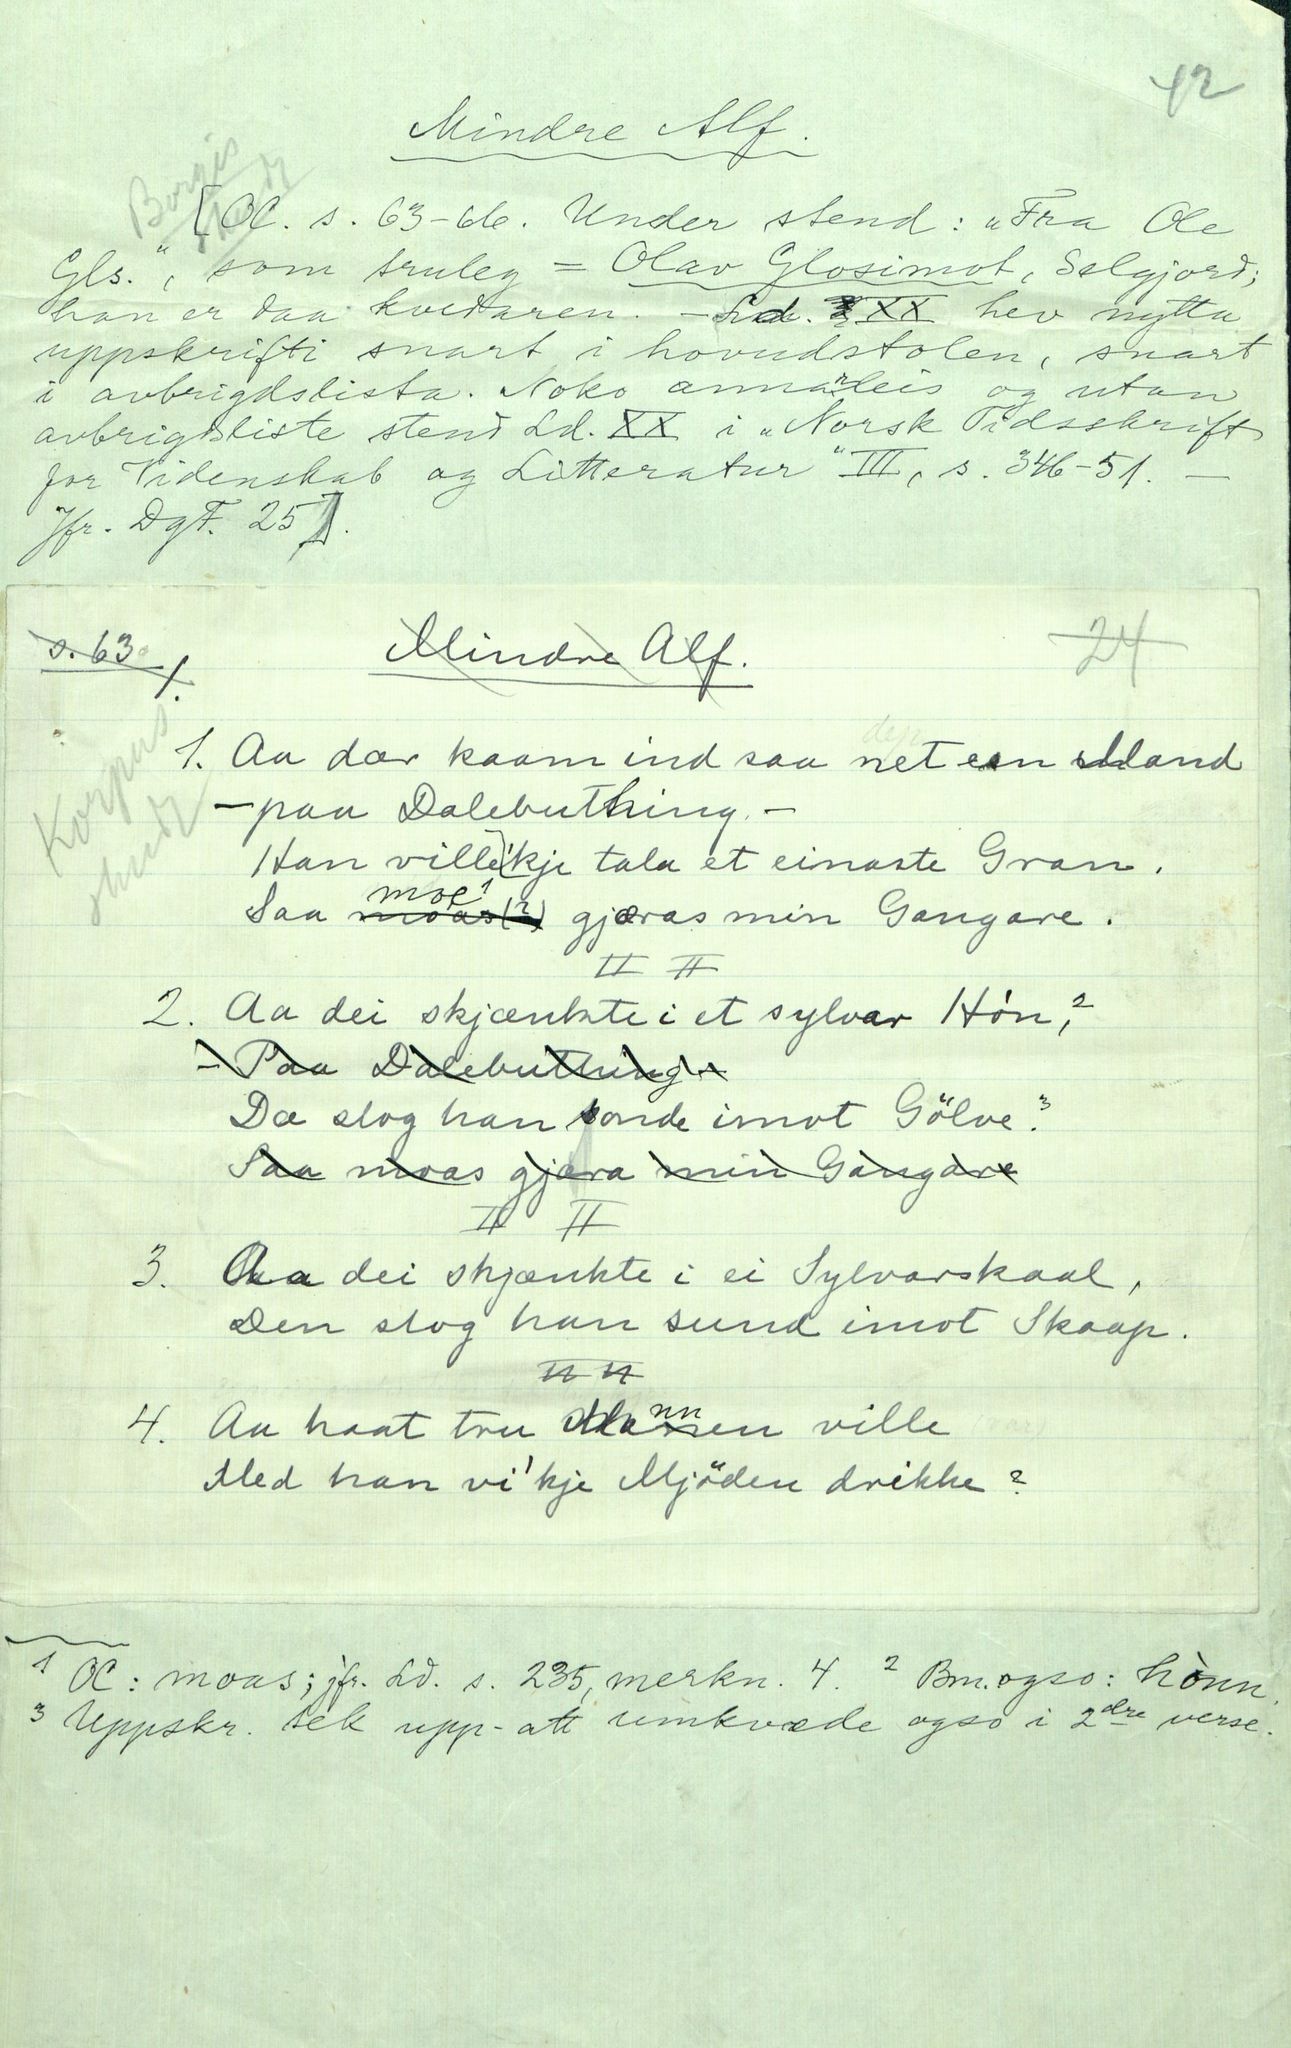 42
Mindre Alf.
Borgis
[OC. s. 63-66. Under stend: „Fra Ole
Gls.“, som truleg = Olav Glosimot, Selgjord;
han er daa kvedaren. - Ld. XX hev nytta
uppskrifti snart i hovudstolen, snart
i avbrigdslista. Noko annarleis og utan
avbrigdsliste stend Ld. XX i „Norsk Tidsskrift
for Videnskab og Litteratur“ III, s. 346-51. -
Jfr. DgF. 25].
s. 63
Mindre Alf.
24
1.
Korpus
1. Aa dær kaam ind saa net ein Mand
- paa Dalebuthing. -
Han ville'kje tala et einaste Gran.
Saa moas(?) moe¹ gjæras min Gangare.
2. Aa dei skjænkte i et sylvar Hón,²
- Paa Dalebuthing -
Dæ slog han sonde imot Gölve.³
Saa moas gjæra min Gangare
3. Aa dei skjænkte i ei Sylvarskaal,
Den slog han sund imot Skaap.
4. Aa haat tru Mannen ville
Med han vi'kje Mjöden drikke?
1 OC: moas; jfr. Ld. s. 235, merkn. 4. 2 Bm. ogso: hònn.
3 Uppskr. tek upp-att umkvæde ogso i 2dre verse.